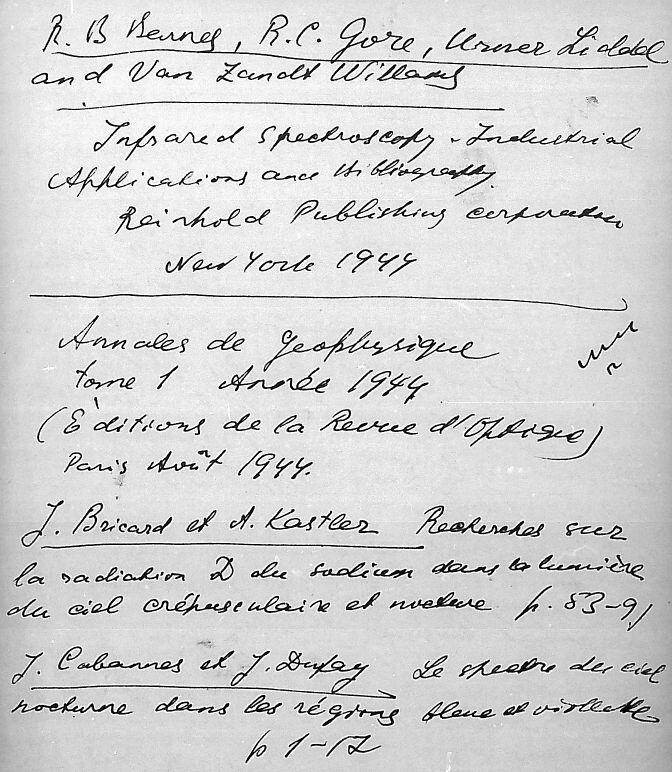 R. B Bernes, R.C. Gore, Urner Liddel
and Van Zandt Willams
Infrared Spectroscopy - Industrial
Applications and Bibliography
Reinhold Publishing corporation
New York 1944
Annales de Geophysique
tome 1 Année 1944
(Éditions de la Revue d'Optique)
Paris Août 1944.
J. Bricard et A. Kastler Recherches sur
la radiation D du sodium dans la lumière
du ciel crépusculaire et nocture p. 53-91
J. Cabannes et J. Dufay Le spectre du ciel
nocturne dans les régions bleue et violette
p 1-17